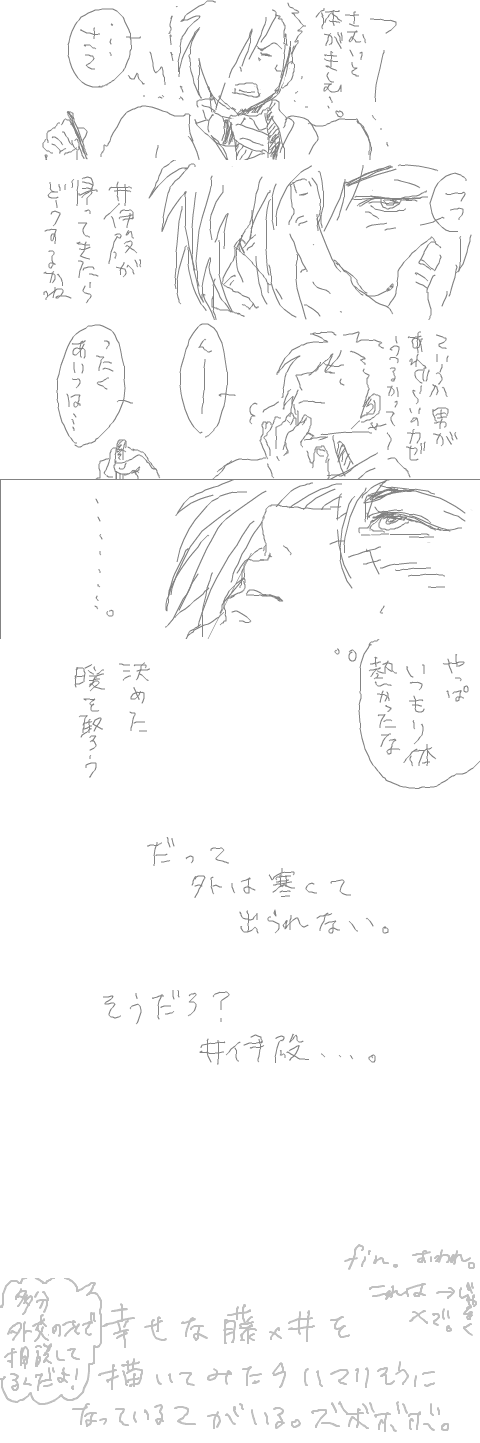 さむいと
体がきしむ…。
…
さて
井伊殿が
帰ってきたら
どうするかね
ていうか男が
あれぐらいのカゼ
うつるかって〜
んー
ったく
あいつは…
やっぱ
いつもり体
熱かったな
決めた
暖を取ろう
だって
外は寒くて
出られない。
そうだろ？
井伊殿…。
fin. おわれ。
これは→
×で。
多分
外交の才で
相談して
るんだよ！
幸せな藤×井を
描いてみたらハマりそうに
なっている乙がいる。ズボボボボ。